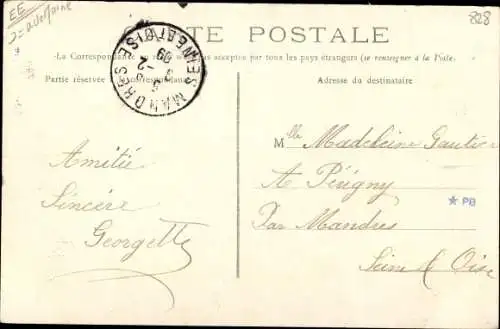 EE
828
CARTE POSTALE
La Correspondance au acceptée par tous les pays étrangers (se renseigner à la Poste)
Partie réservée à la correspondance
Adresse du destinataire
MANDRES
SEINE & OISE
09
Amitié
Sincère
Georgette
Mlle Madeleine Gautier
A Périgny
Par Mandres
Seine & Oise
* PB